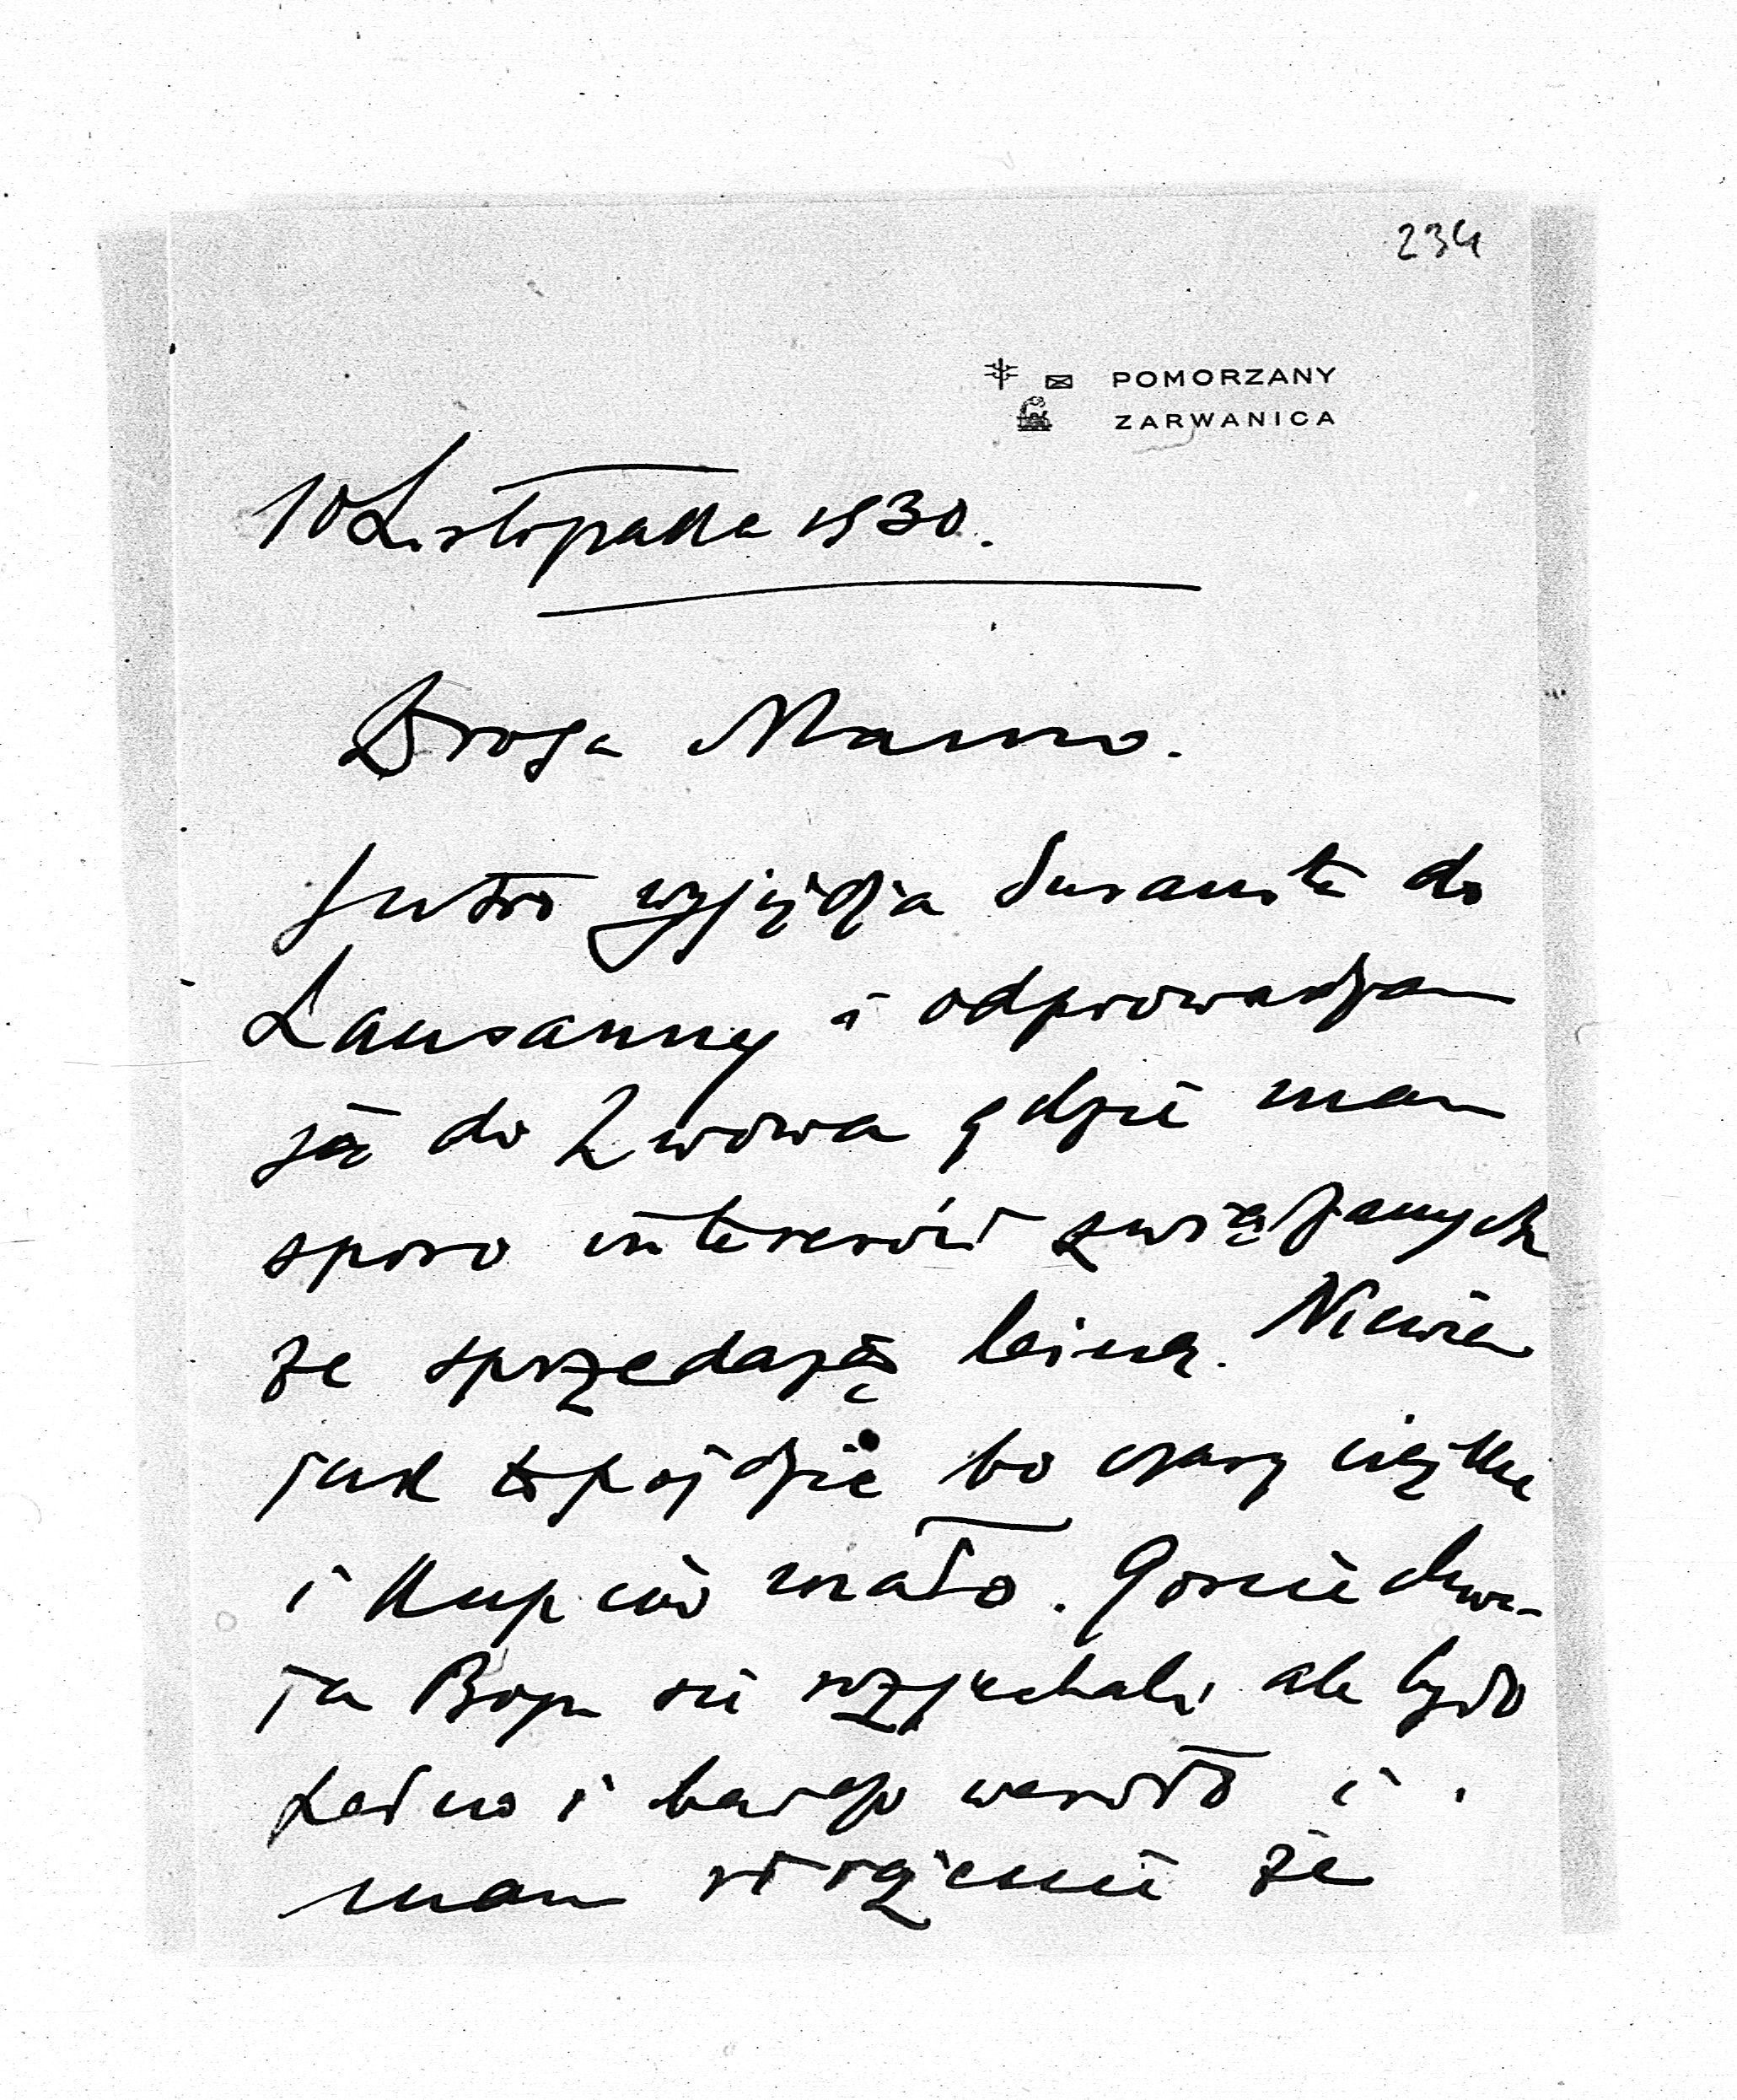 234
POMORZANY
ZARWANICA
10 Listopada 1930.
Droga Mamo.
Jutro wyjeżdża Zuzanna do
Lausanny i odprowadzam
ją do Lwowa gdzie mam
sporo interesów związanych
ze sprzedażą leśną. Niewiem
jak to pójdzie bo czasy ciężkie
i kupców mało. Goście chwa-
ła Bogu się rozjechali ale było
ładno i bardzo wesoło i
mam wrażenie że